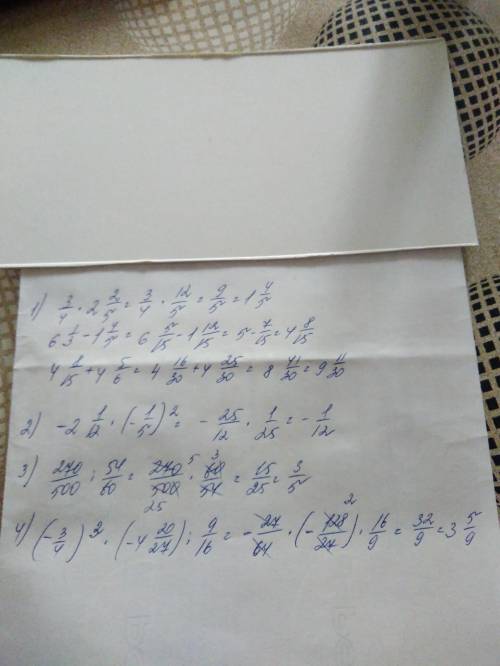 1) 3/4 · 2 2/5 = 3/4 · 12/5 = 9/5 = 1 4/5
6 1/3 - 1 4/5 = 6 5/15 - 1 12/15 = 5 - 7/15 = 4 8/15
4 8/15 + 4 5/6 = 4 16/30 + 4 25/30 = 8 41/30 = 9 11/30
2) -2 1/12 · (-1/5)² = - 25/12 · 1/25 = - 1/12
3) 270/500 : 54/60 = 270/500 · 60/54 = 15/25 = 3/5
4) (-3/4)³ · (-4 20/27) : 9/16 = - 27/64 · (- 128/27) · 16/9 = 32/9 = 3 5/9